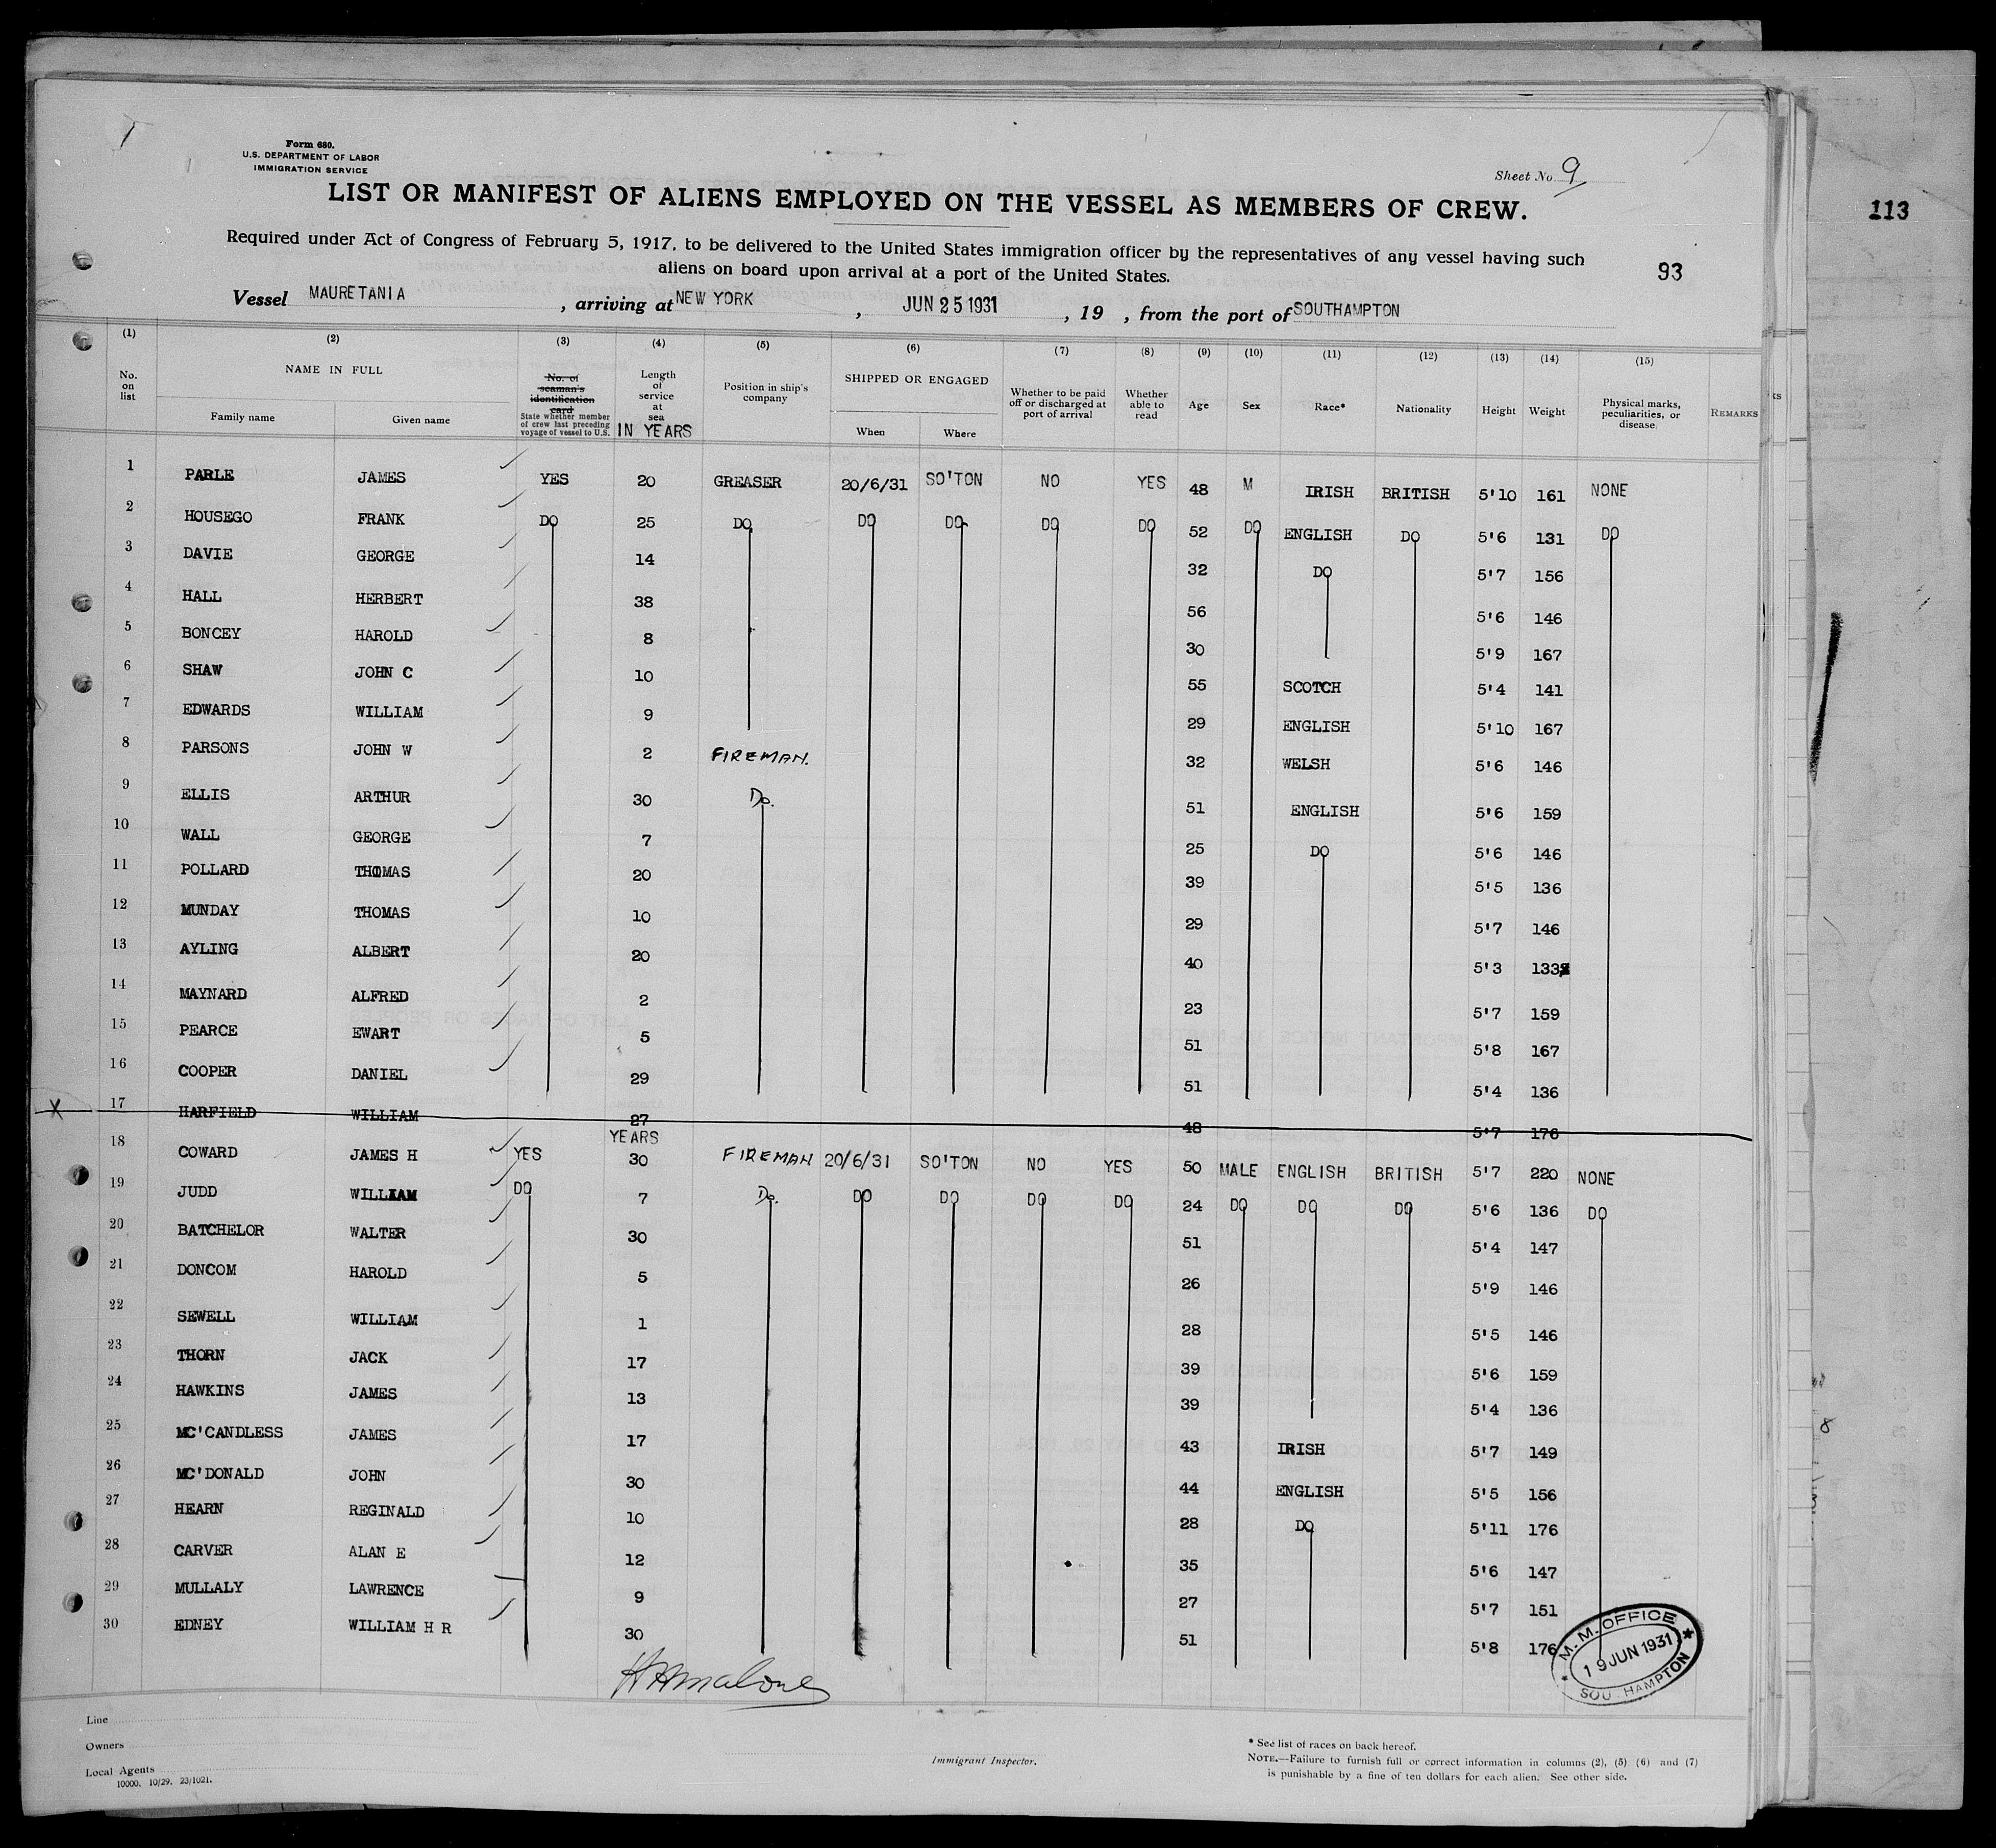 Form 680.
U.S. DEPARTMENT OF LABOR
IMMIGRATION SERVICE
Sheet No. 9
LIST OR MANIFEST OF ALIENS EMPLOYED ON THE VESSEL AS MEMBERS OF CREW.
113
Required under Act of Congress of February 5, 1917, to be delivered to the United States immigration officer by the representatives of any vessel having such
aliens on board upon arrival at a port of the United States.
93
Vessel MAURETANIA, arriving at NEW YORK, JUN 25 1931, 19 , from the port of SOUTHAMPTON
(1) (2) (3) (4) (5) (6) (7) (8) (9) (10) (11) (12) (13) (14) (15)
No. on list
NAME IN FULL
Family name Given name
No. of seaman's identification card
State whether member of crew last preceding voyage of vessel to U.S.
Length of service at sea IN YEARS
Position in ship's company
SHIPPED OR ENGAGED
When Where
Whether to be paid off or discharged at port of arrival
Whether able to read
Age Sex Race* Nationality Height Weight
Physical marks, peculiarities, or disease
REMARKS
1 PARLE JAMES YES 20 GREASER 20/6/31 SO'TON NO YES 48 M IRISH BRITISH 5'10 161 NONE
2 HOUSEGO FRANK DO 25 DO DO DO DO DO 52 DO ENGLISH DO 5'6 131 DO
3 DAVIE GEORGE 14 32 DO 5'7 156
4 HALL HERBERT 38 56 5'6 146
5 BONCEY HAROLD 8 30 5'9 167
6 SHAW JOHN C 10 55 SCOTCH 5'4 141
7 EDWARDS WILLIAM 9 29 ENGLISH 5'10 167
8 PARSONS JOHN W 2 FIREMAN. 32 WELSH 5'6 146
9 ELLIS ARTHUR 30 Do. 51 ENGLISH 5'6 159
10 WALL GEORGE 7 25 DO 5'6 146
11 POLLARD THOMAS 20 39 5'5 136
12 MUNDAY THOMAS 10 29 5'7 146
13 AYLING ALBERT 20 40 5'3 133
14 MAYNARD ALFRED 2 23 5'7 159
15 PEARCE EWART 5 51 5'8 167
16 COOPER DANIEL 29 51 5'4 136
X 17 HARFIELD WILLIAM 27 48 5'7 176
YEARS
18 COWARD JAMES H YES 30 FIREMAN 20/6/31 SO'TON NO YES 50 MALE ENGLISH BRITISH 5'7 220 NONE
19 JUDD WILLIAM DO 7 Do. DO DO DO DO 24 DO DO DO 5'6 136 DO
20 BATCHELOR WALTER 30 51 5'4 147
21 DONCOM HAROLD 5 26 5'9 146
22 SEWELL WILLIAM 1 28 5'5 146
23 THORN JACK 17 39 5'6 159
24 HAWKINS JAMES 13 39 5'4 136
25 MC'CANDLESS JAMES 17 43 IRISH 5'7 149
26 MC'DONALD JOHN 30 44 ENGLISH 5'5 156
27 HEARN REGINALD 10 28 DO 5'11 176
28 CARVER ALAN E 12 35 5'6 147
29 MULLALY LAWRENCE 9 27 5'7 151
30 EDNEY WILLIAM H R 30 51 5'8 176
M. M. OFFICE
19 JUN 1931
SOU HAMPTON
Line
Owners
Local Agents
10000. 10/29. 23/1021.
Immigrant Inspector.
* See list of races on back hereof.
NOTE.—Failure to furnish full or correct information in columns (2), (5) (6) and (7)
is punishable by a fine of ten dollars for each alien. See other side.